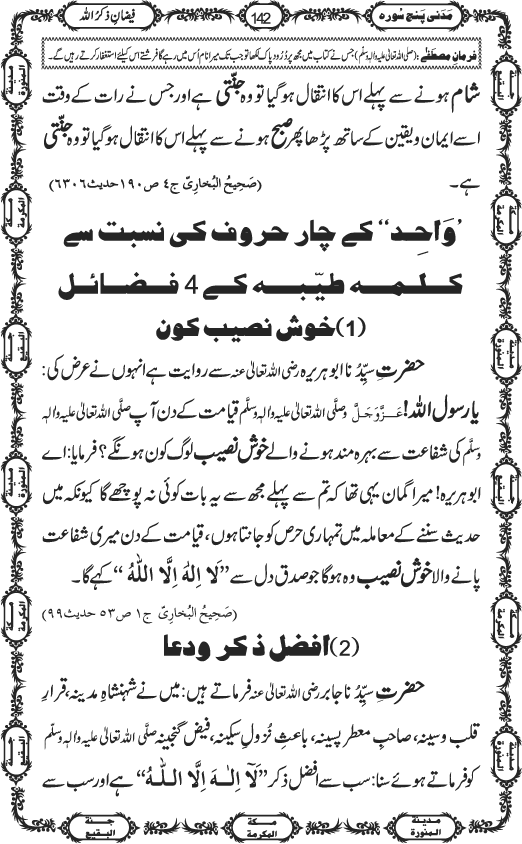 مَدَنی پنج سُورہ
142
فیضانِ ذِکرُ اللہ
فرمانِ مصطفےٰ: (صلی اللہ تعالیٰ علیہ والہٖ وسلم) جس نے کتاب میں مجھ پر دُرود پاک لکھا تو جب تک میرا نام اُس میں رہے گا فرشتے اس کیلئے استغفار کرتے رہیں گے۔
شام ہونے سے پہلے اس کا انتقال ہو گیا تو وہ جنّتی ہے اور جس نے رات کے وقت
اسے ایمان و یقین کے ساتھ پڑھا پھر صبح ہونے سے پہلے اس کا انتقال ہو گیا تو وہ جنّتی
ہے۔ (صَحِیحُ البُخارِیّ ج٤ ص١٩٠ حدیث٦٣٠٦)
’وَاحِد‘‘ کے چار حروف کی نسبت سے
کلمہ طیّبہ کے 4 فضائل
(1) خوش نصیب کون
حضرتِ سیِّدُنا ابو ہریرہ رضی اللہ تعالیٰ عنہ سے روایت ہے انہوں نے عرض کی:
یا رسول اللہ! عَزَّوَجَلَّ وصلَّی اللہ تعالیٰ علیہ والہٖ وسلَّم قیامت کے دن آپ صلَّی اللہ تعالیٰ علیہ والہٖ
وسلَّم کی شفاعت سے بہرہ مند ہونے والے خوش نصیب لوگ کون ہونگے؟ فرمایا: اے
ابو ہریرہ! میرا گمان یہی تھا کہ تم سے پہلے مجھ سے یہ بات کوئی نہ پوچھے گا کیونکہ میں
حدیث سننے کے معاملہ میں تمہاری حرص کو جانتا ہوں، قیامت کے دن میری شفاعت
پانے والا خوش نصیب وہ ہوگا جو صدقِ دل سے ’’لَا اِلٰہَ اِلَّا اللّٰہُ‘‘ کہے گا۔
(صَحِیحُ البُخارِیّ ج١ ص٥٣ حدیث٩٩)
(2) افضل ذکر و دعا
حضرتِ سیِّدُنا جابر رضی اللہ تعالیٰ عنہ فرماتے ہیں: میں نے شہنشاہِ مدینہ، قرارِ
قلب و سینہ، صاحبِ معطر پسینہ، باعثِ نُزولِ سکینہ، فیض گنجینہ صلَّی اللہ تعالیٰ علیہ والہٖ وسلَّم
کو فرماتے ہوئے سنا: سب سے افضل ذکر ’’لَآ اِلٰہَ اِلَّا اللّٰہُ‘‘ ہے اور سب سے
مدینۃ المنورۃ
مکۃ المکرمۃ
جنۃ البقیع